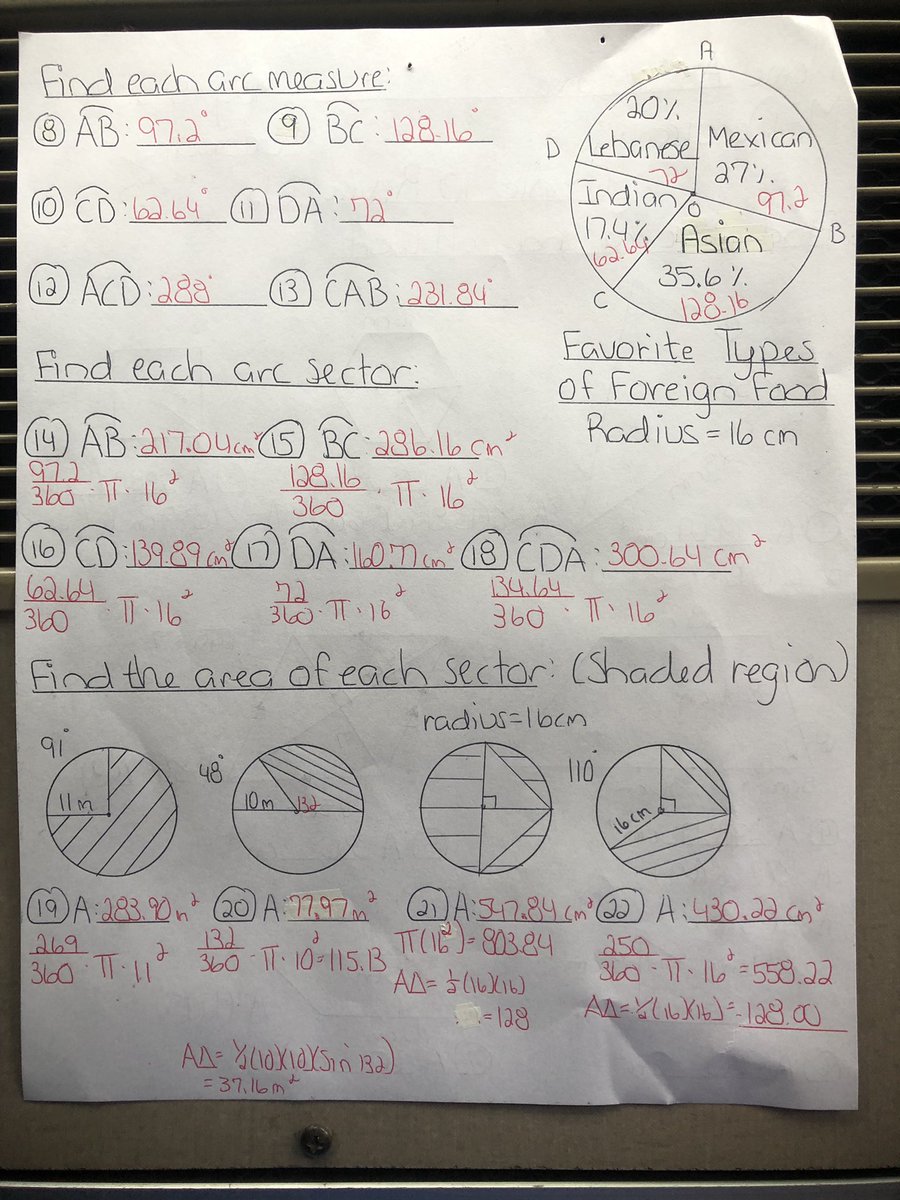 Find each arc measure:
⑧ AB: 97.2° ⑨ BC: 128.16°
⑩ CD: 62.64° ⑪ DA: 72°
⑫ ACD: 288° ⑬ CAB: 231.84°
A
20%
Lebanese
72
Mexican
27%
97.2
D
Indian
17.4%
62.64
O
Asian
35.6%
128.16
B
C
Favorite Types
of Foreign Food
Radius = 16 cm
Find each arc sector:
⑭ AB: 217.04cm² ⑮ BC: 286.16 cm²
97.2/360 · π · 16² 128.16/360 · π · 16²
⑯ CD: 139.89 cm² ⑰ DA: 160.77 cm² ⑱ CDA: 300.64 cm²
62.64/360 · π · 16² 72/360 · π · 16² 134.64/360 · π · 16²
Find the area of each sector: (Shaded region)
radius=16cm
91° 48° 110°
11m 10m 132 16cm
⑲ A: 283.90 m² ⑳ A: 77.97 m² ㉑ A: 547.84 cm² ㉒ A: 430.22 cm²
269/360 · π · 11² 132/360 · π · 10² = 115.13 π(16²) = 803.84 250/360 · π · 16² = 558.22
A∆= ½(16)(16) A∆= ½(16)(16) = -128.00
= 128
A∆= ½(10)(10)(sin 132)
= 37.16 m²